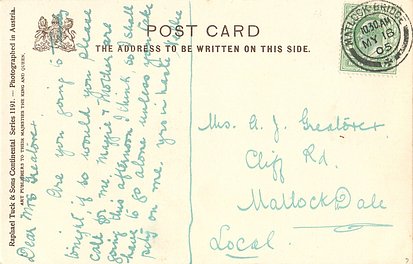 POST CARD
THE ADDRESS TO BE WRITTEN ON THIS SIDE.
Raphael Tuck & Sons Continental Series 1191. — Photographed in Austria.
ART PUBLISHERS TO THEIR MAJESTIES THE KING AND QUEEN.
MATLOCK-BRIDGE
10.30 AM
MY 16
05
Dear Mrs Greatorex
Are you going to
tonight, if so would you please
call for me. Maggie & Mother are
going this afternoon I think, so I shall
have to go alone unless you take
pity on me. Yrs in haste
Mrs. A. J. Greatorex
Cliff Rd.
Matlock Dale
Local.